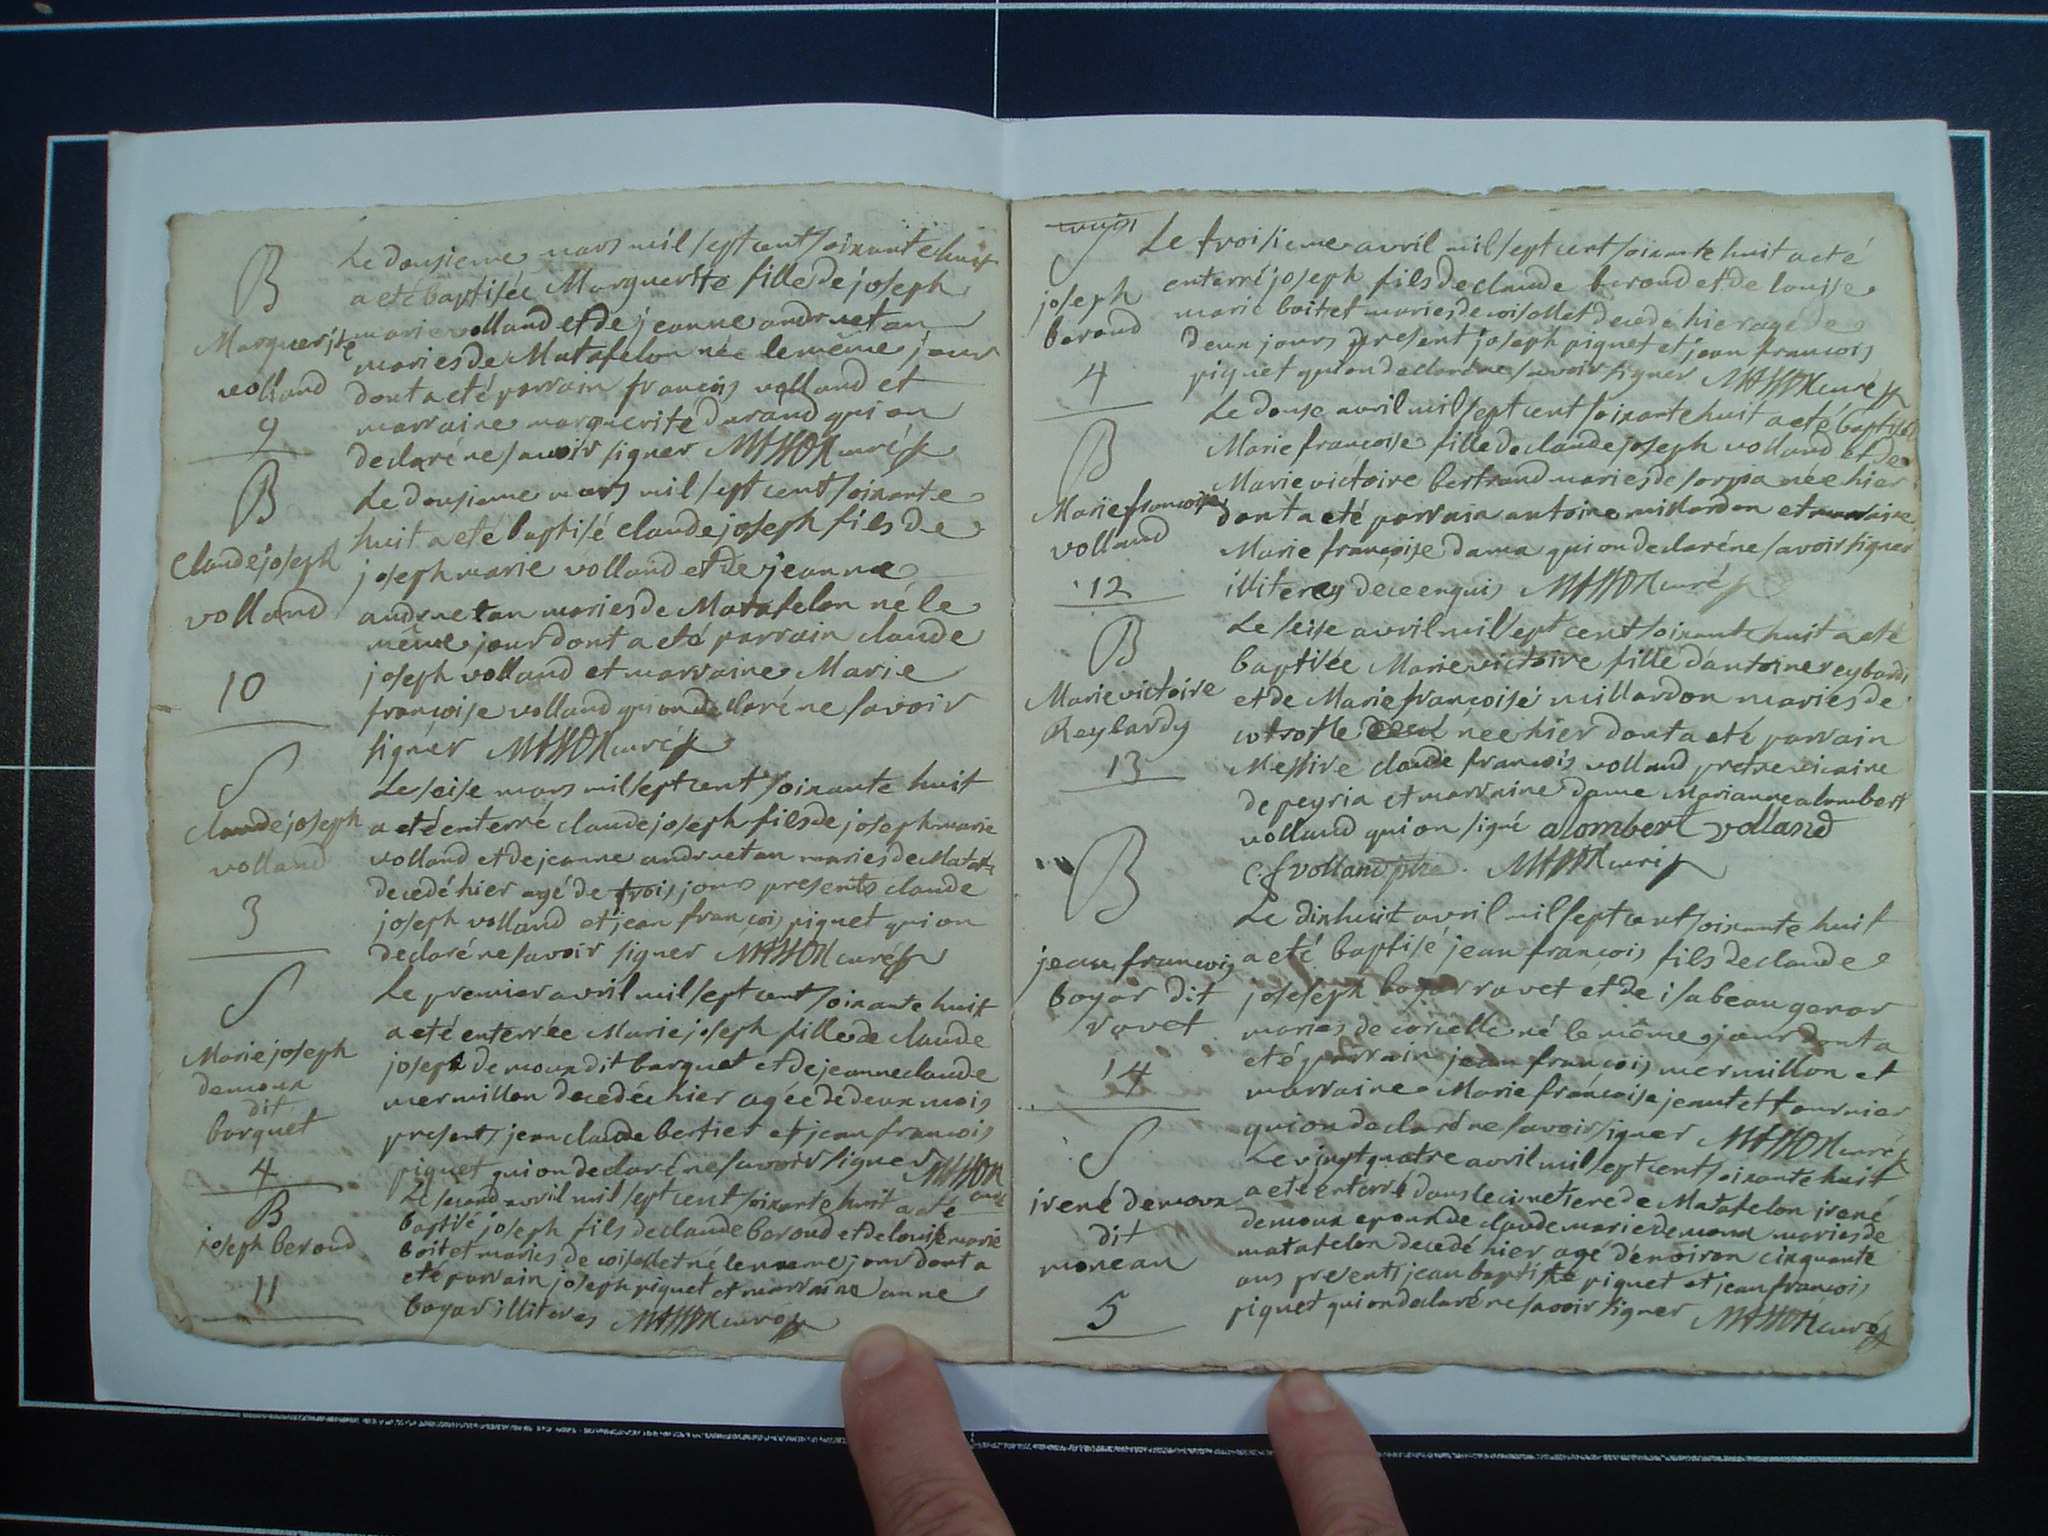 B
Marguerite
volland
9
Le dousieme mars mil sept cent soixante huit
a eté baptisée Marguerite fille de joseph
marie volland et de jeanne andruetan
maries de Matafelon née le même jour
dont a eté parrain françois volland et
marraine marguerite durand qui on
declaré ne savoir signer MASSON curé
B
Claude joseph
volland
10
Le dousieme mars mil sept cent soixante
huit a eté baptisé claude joseph fils de
joseph marie volland et de jeanne
andruetan maries de Matafelon né le
même jour dont a eté parrain claude
joseph volland et marraine Marie
françoise volland qui on declaré ne savoir
signer MASSON curé
S
claude joseph
volland
3
Le seise mars mil sept cent soixante huit
a eté enterré claude joseph fils de joseph marie
volland et de jeanne andruetan maries de Matafe
decedé hier agé de trois jours presents claude
joseph volland et jean françois piquet qui on
declaré ne savoir signer MASSON curé
S
Marie joseph
demoux
dit
barquet
4
Le premier avril mil sept cent soixante huit
a eté enterrée Marie joseph fille de claude
joseph demoux dit barquet et de jeanne claude
mermillon decedée hier agée de deux mois
presents jean claude bertier et jean francois
piquet qui on declaré ne savoir signer MASSON
curé
B
joseph beroud
11
Le second avril mil sept cent soixante huit a eté
baptisé joseph fils de claude beroud et de louise marie
boitet maries de coisellet né le meme jour dont a
eté parrain joseph piquet et marraine anne
bogar illiteres MASSON curé
S
joseph
beroud
4
Le troisieme avril mil sept cent soixante huit a eté
enterré joseph fils de claude beroud et de louise
marie boitet maries de coisellet decedé hier agé de
deux jours present joseph piquet et jean francois
piquet qui on declaré ne savoir signer MASSON curé
B
Marie francoise
volland
12
Le douse avril mil sept cent soixante huit a eté baptisé
Marie francoise fille de claude joseph volland et de
Marie victoire bertrand maries de sorpia née hier
dont a eté parrain antoine millardon et marraine
Marie françoise dama qui on declaré ne savoir signer
illiteres de ce enquis MASSON curé
B
Marie victoire
Reybardy
13
Le seise avril mil sept cent soixante huit a eté
baptisée Marie victoire fille d'antoine reybardi
et de Marie françoise millardon maries de
née hier dont a eté parrain
Messire claude françois volland pretre vicaire
de peyria et marraine dame Marianne alombert
volland qui on signé alombert volland
C f volland ptre. MASSON curé
B
jean françois
bogar dit
ravet
14
Le dixhuit avril mil sept cent soixante huit
a eté baptisé jean françois fils de claude
joseseph bogar ravet et de isabeau genar
maries de corcelle né le même jour dont a
eté parrain jean françois mermillon et
marraine Marie françoise jeantet tournier
qui on declaré ne savoir signer MASSON curé
S
irené demoux
dit
monean
5
Le vingt quatre avril mil sept cent soixante huit
a eté enterré dans le cimetiere de Matafelon irené
demoux epoux de claude marie demoux maries de
matafelon decedé hier agé d'environ cinquante
ans presents jean baptiste piquet et jean francois
piquet qui on declaré ne savoir signer MASSON curé